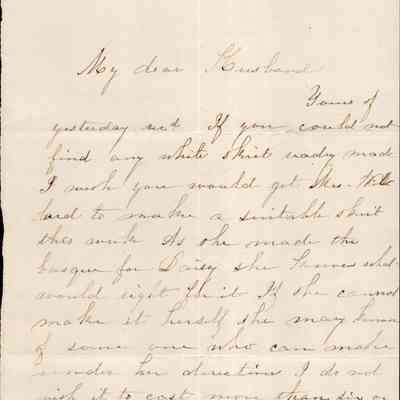 My dear Husband
Yours of
yesterday rec'd If you could not
find any white skirt ready made
I wish you would get Mrs. Wil
lard to make a suitable skirt
this week As she made the
basque for Daisy she knows what
would right for it If she cannot
make it herself she may know
of some one who can make
under her direction I do not
wish it to cost more than six or